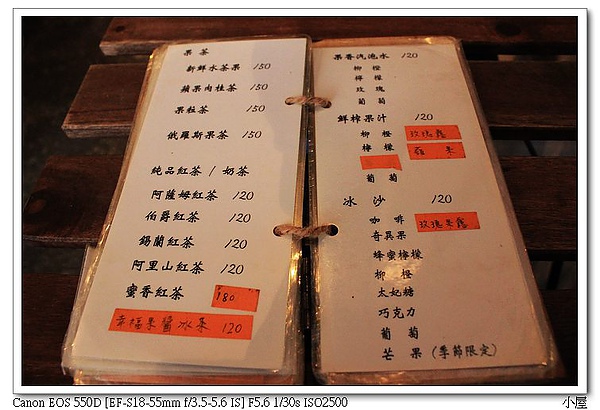 果 茶
新鮮水茶果 150
蘋果肉桂茶 150
果粒茶 150
俄羅斯果茶 150
純品紅茶 / 奶茶
阿薩姆紅茶 120
伯爵紅茶 120
錫蘭紅茶 120
阿里山紅茶 120
蜜香紅茶 180
幸福果醬冰茶 120
果香汽泡水 120
柳 橙
檸 檬
玫 瑰
葡 萄
鮮榨果汁 120
柳 橙 玫瑰露
檸 檬 蘋 果
葡 萄
冰 沙 120
咖 啡 玫瑰果露
奇異果
蜂蜜檸檬
柳 橙
太妃糖
巧克力
葡 萄
芒 果 (季節限定)
Canon EOS 550D [EF-S18-55mm f/3.5-5.6 IS] F5.6 1/30s ISO2500
小屋